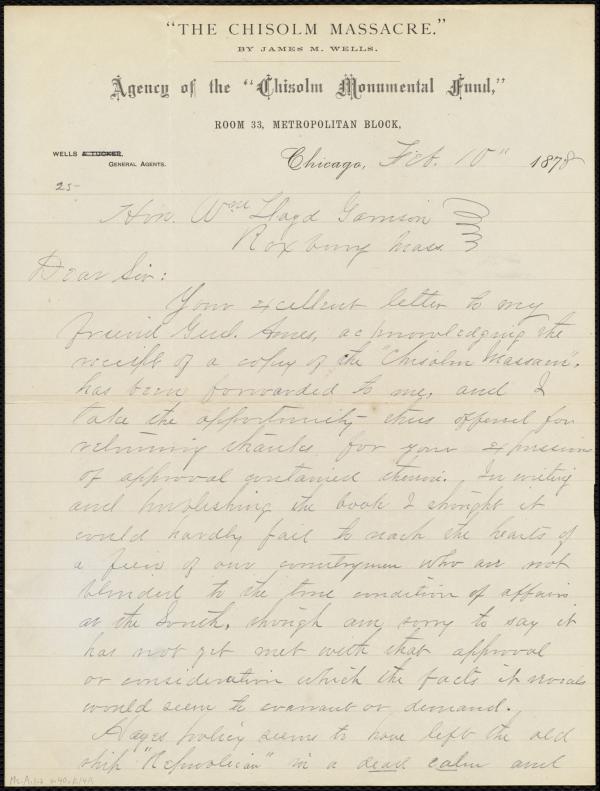 "THE CHISOLM MASSACRE."
BY JAMES M. WELLS.
Agency of the "Chisolm Monumental Fund,"
ROOM 33, METROPOLITAN BLOCK,
WELLS & TUCKER,
GENERAL AGENTS.
Chicago, Feb. 10" 1878
25-
Hon. Wm Lloyd Garrison
Roxbury Mass.
Dear Sir:
Your excellent letter to my
friend Genl. Ames, acknowledging the
receipt of a copy of the "Chisolm Massacre",
has been forwarded to me, and I
take the opportunity thus offered for
returning thanks for your expressions
of approval contained therein. In writing
and publishing the book I thought it
could hardly fail to reach the hearts of
a few of our countrymen who are not
blinded to the true condition of affairs
at the South, though am sorry to say it
has not yet met with that approval
or consideration which the facts it reveals
would seem to warrant or demand.
Hayes policy seems to have left the old
ship "Republican" in a dead calm and